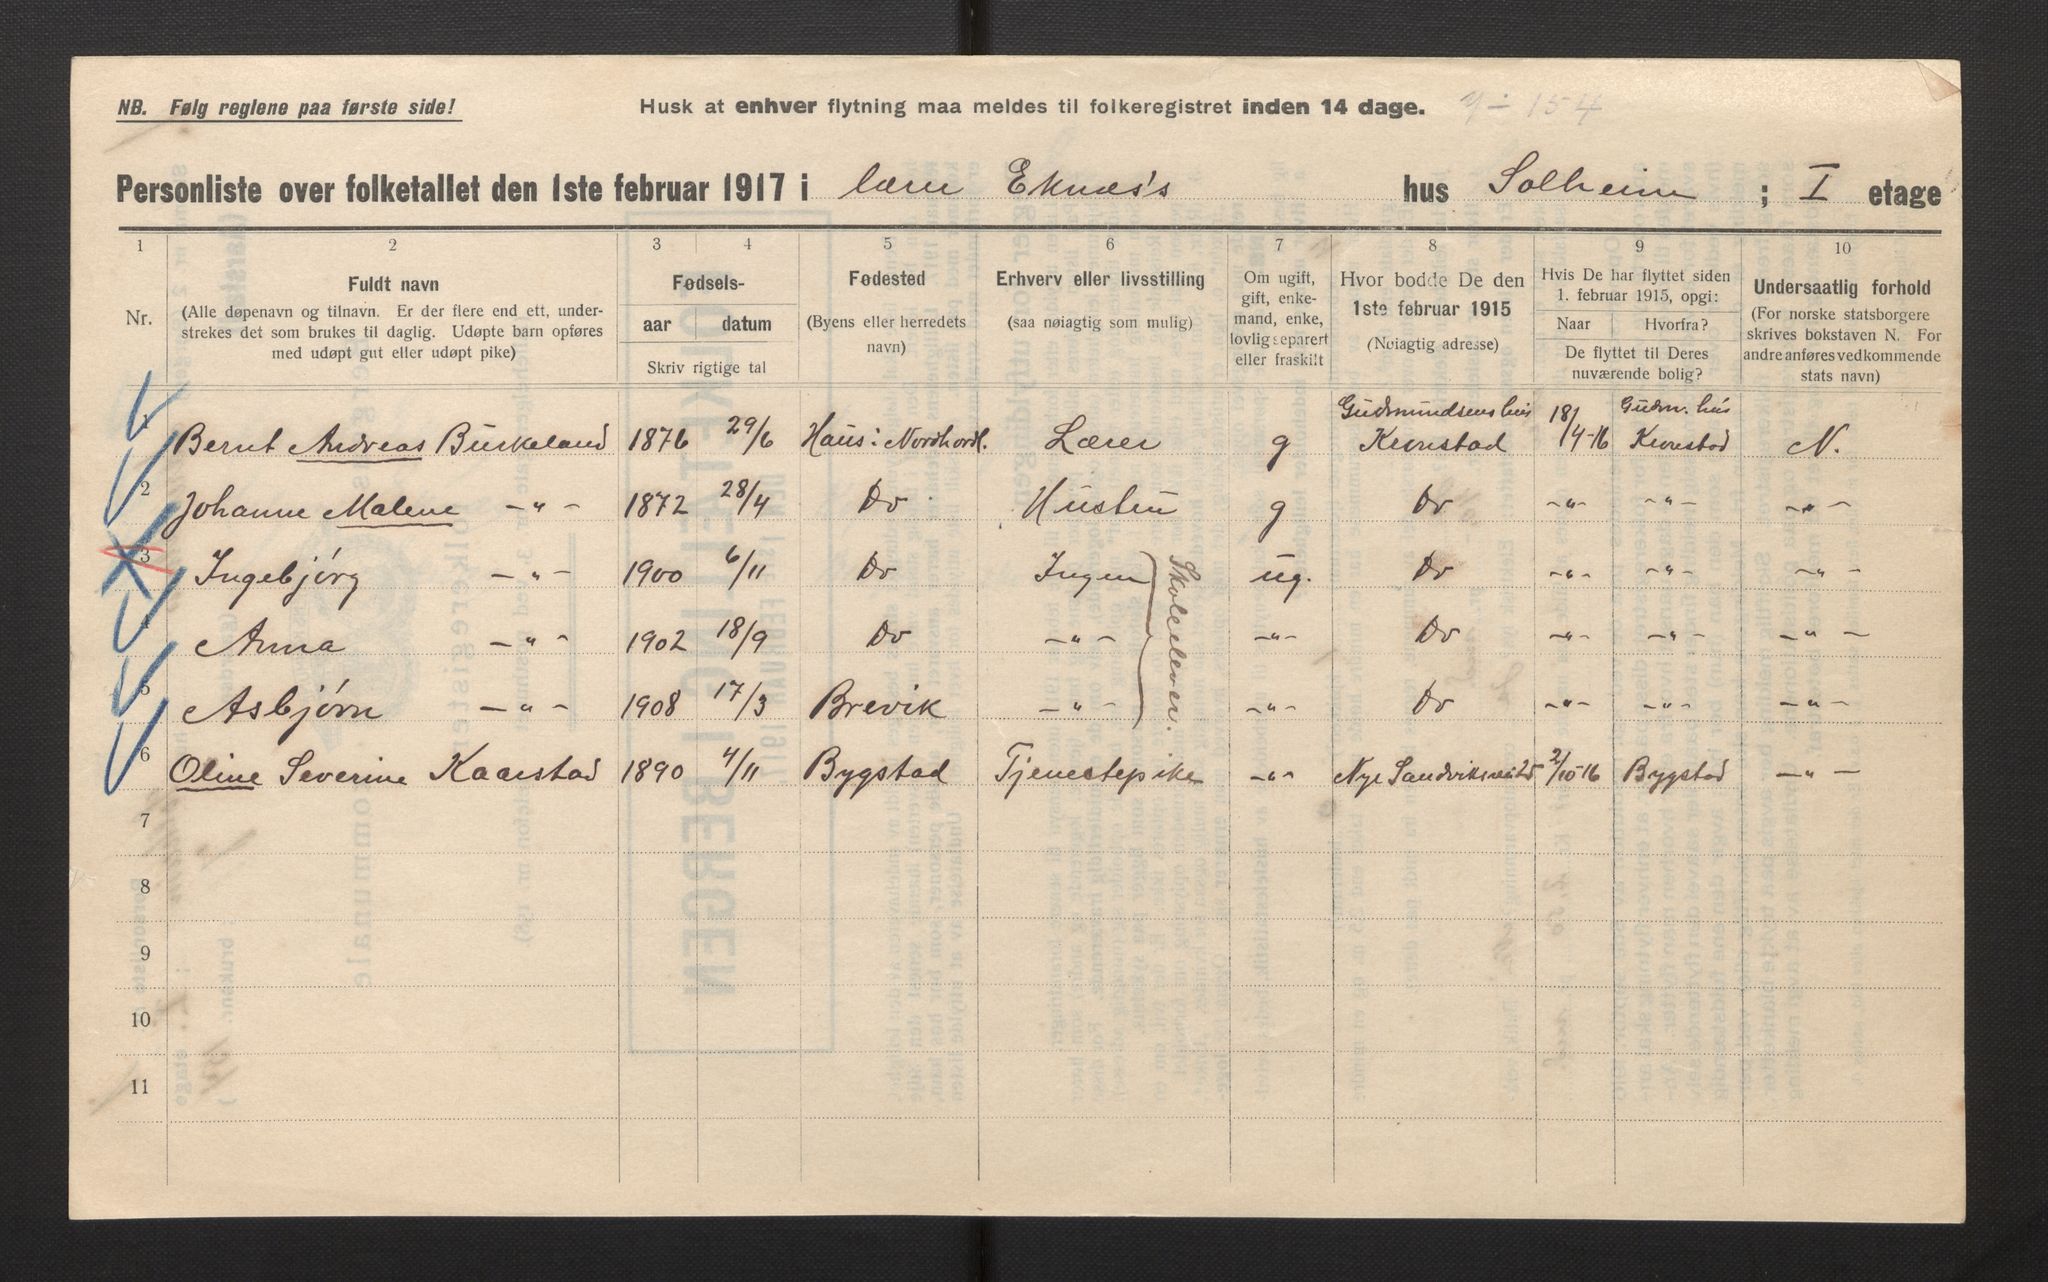 NB. Følg reglene paa første side!
Husk at enhver flytning maa meldes til folkeregistret inden 14 dage.
Personliste over folketallet den 1ste februar 1917 i lærer Eknæs's hus Solheim ; I etage
1 2 3 4 5 6 7 8 9 10
Nr.
Fuldt navn
(Alle døpenavn og tilnavn. Er der flere end ett, under-
strekes det som brukes til daglig. Udøpte barn opføres
med udøpt gut eller udøpt pike)
Fødsels-
aar datum
Skriv rigtige tal
Fødested
(Byens eller herredets
navn)
Erhverv eller livsstilling
(saa nøiagtig som mulig)
Om ugift,
gift, enke-
mand, enke,
lovlig separert
eller fraskilt
Hvor bodde De den
1ste februar 1915
(Nøiagtig adresse)
Hvis De har flyttet siden
1. februar 1915, opgi:
Naar Hvorfra?
De flyttet til Deres
nuværende bolig?
Undersaatlig forhold
(For norske statsborgere
skrives bokstaven N. For
andre anføres vedkommende
stats navn)
1 Bernt Andreas Burkeland 1876 29/6 Haus i Nordhordl. Lærer g Gudmundsens hus Kronstad 18/4-16 Gudm. hus Kronstad N.
2 Johanne Malene -„- 1872 28/4 Do Hustru g Do -„- -„- -„-
3 Ingebjørg -„- 1900 6/11 Do Ingen Skoleelever. ug. Do -„- -„- -„-
4 Anna -„- 1902 18/9 Do -„- -„- Do -„- -„- -„-
5 Asbjørn -„- 1908 17/3 Brevik -„- -„- Do -„- -„- -„-
6 Oline Severine Kaarstad 1890 4/11 Bygstad Tjenestepike -„- Nye Sandviksvei 2/10-16 Bygstad -„-
7
8
9
10
11